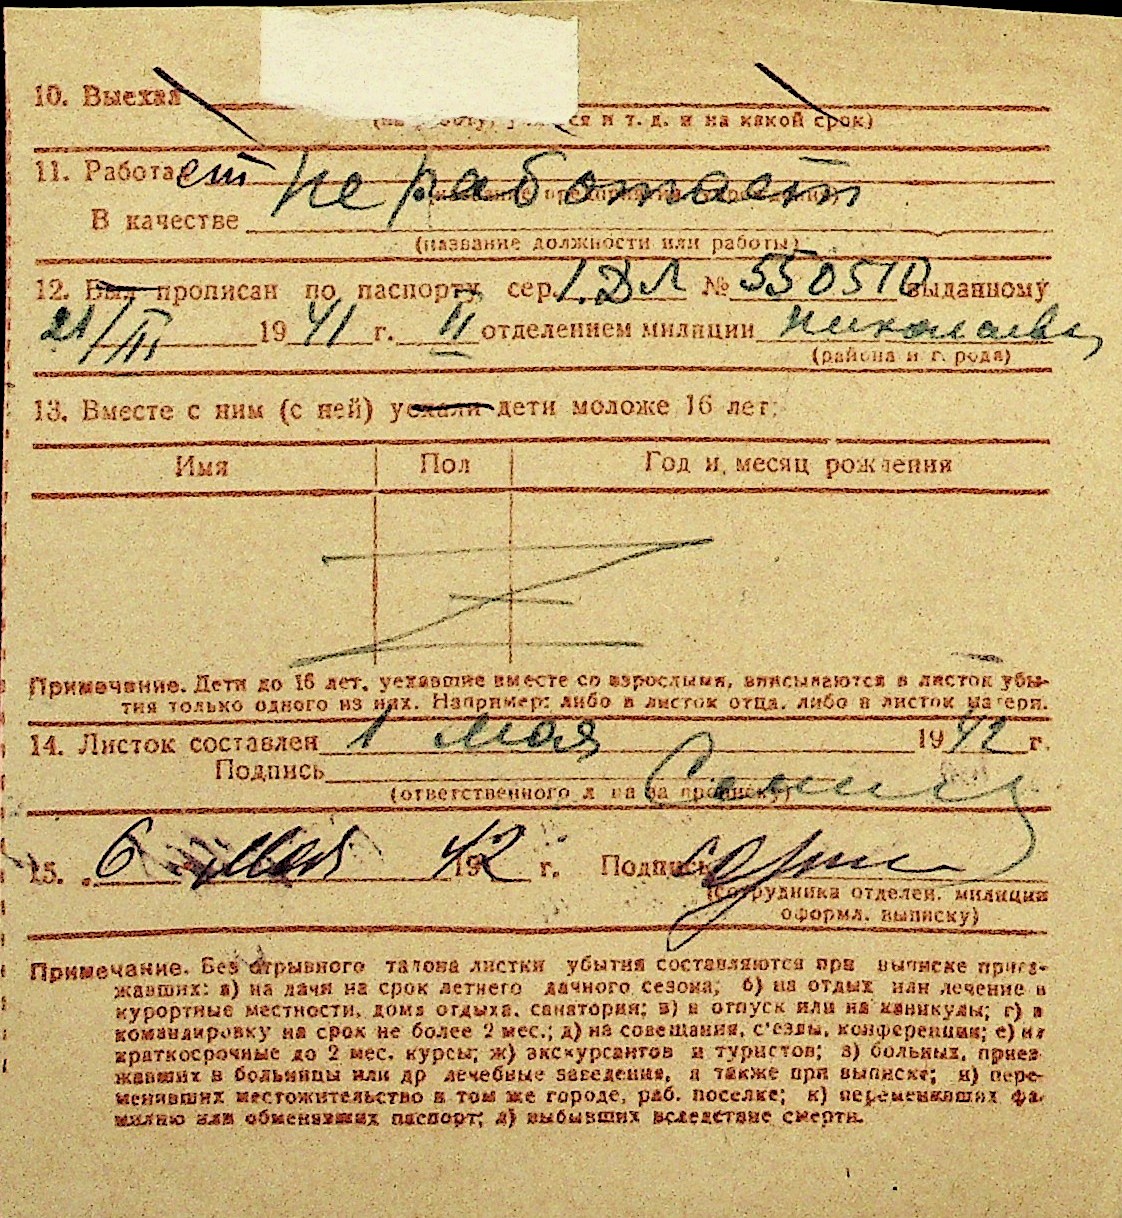 10. Выехал
(на работу, учиться и т. д. и на какой срок)
11. Работает не работает
В качестве
(название должности или работы)
12. Был прописан по паспорту сер. I ДЛ № 550510 выданному
21/III 1941 г. II отделением милиции Николаев
(района и города)
13. Вместе с ним (с ней) уехали дети моложе 16 лет:
Имя Пол Год и месяц рождения
Примечание. Дети до 16 лет, уехавшие вместе со взрослыми, вписываются в листок убы-
тия только одного из них. Например: либо в листок отца, либо в листок матери.
14. Листок составлен 1 мая 1942 г.
Подпись
(ответственного л на за прописку)
15. 6 мая 1942 г. Подпись
(сотрудника отделен. милиции
оформл. выписку)
Примечание. Без отрывного талона листки убытия составляются при выписке приез-
жавших: а) на дачи на срок летнего дачного сезона; б) на отдых или лечение в
курортные местности, дома отдыха, санатория; в) в отпуск или на каникулы; г) в
командировку на срок не более 2 мес.; д) на совещания, с'езды, конференции; е) на
краткосрочные до 2 мес. курсы; ж) экскурсантов и туристов; з) больных, приез-
жавших в больницы или др лечебные заведения, а также при выписке; и) пере-
менивших местожительство в том же городе, раб. поселке; к) переменивших фа-
милию или обменявших паспорт; л) выбывших вследствие смерти.